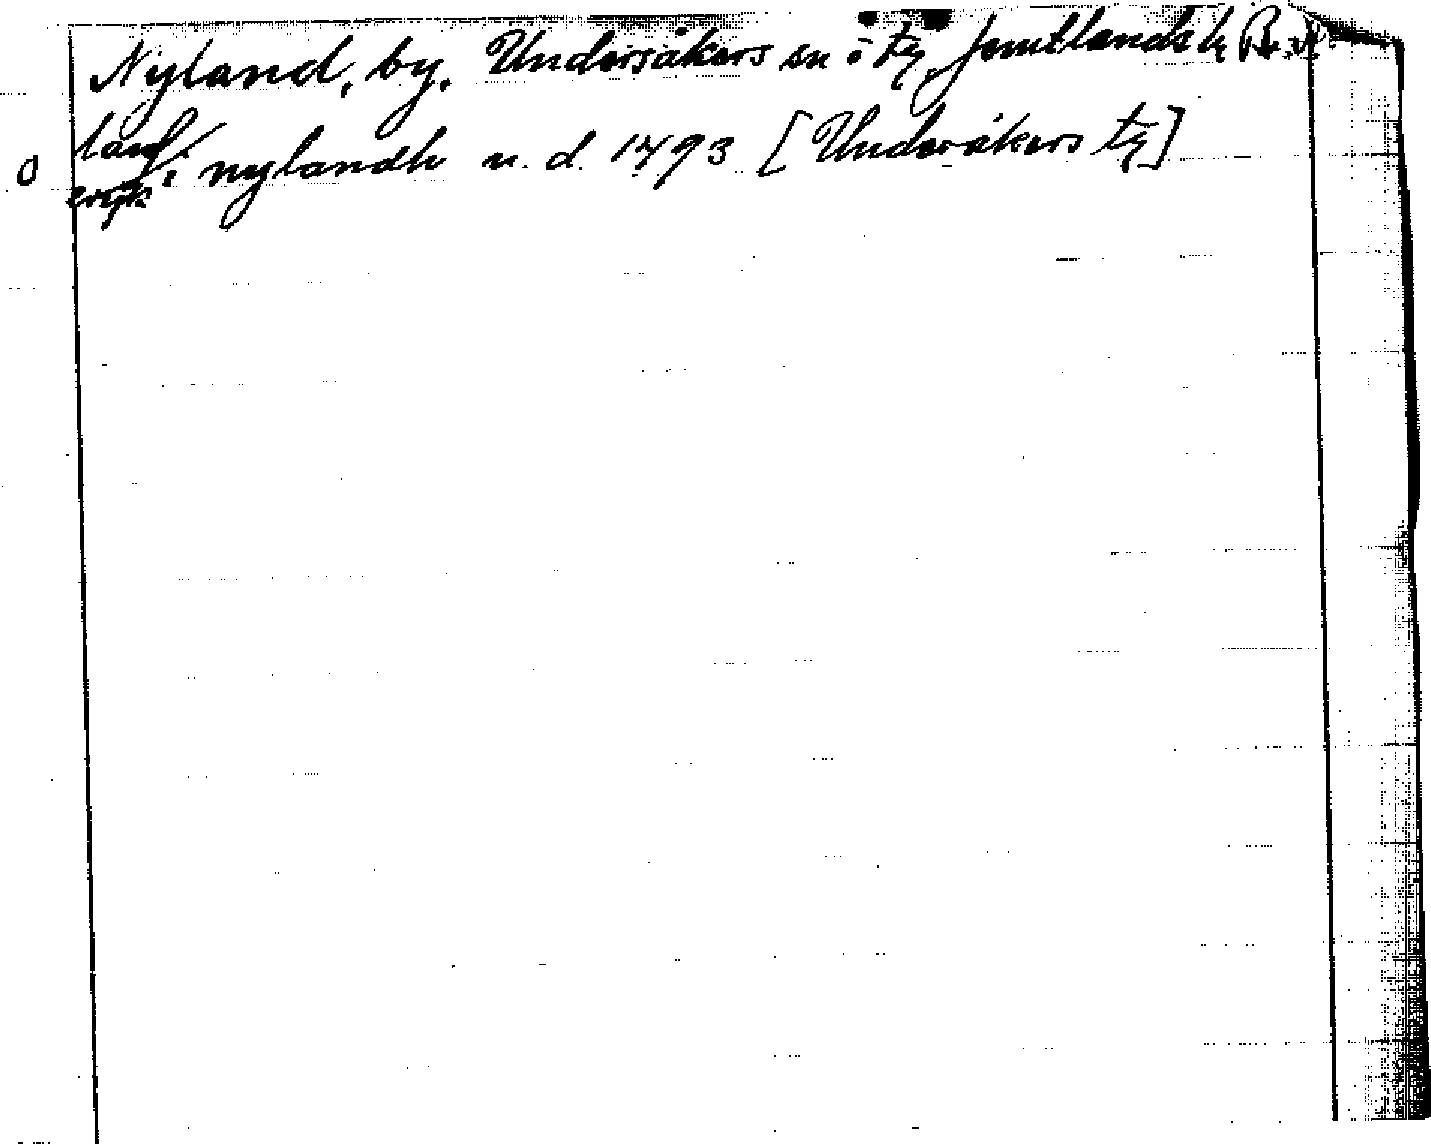 Nyland, by. Undersåkers sn o tg, Jämtlands l.
0 nylandh u. d. 1493 [Undersåkers tg]